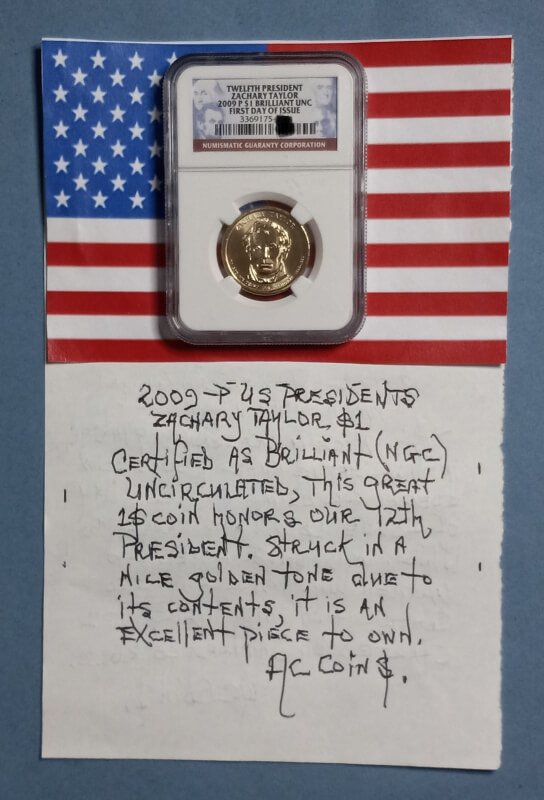 TWELFTH PRESIDENT
ZACHARY TAYLOR
2009 P $1 BRILLIANT UNC
FIRST DAY OF ISSUE
3369175
NUMISMATIC GUARANTY CORPORATION
2009-P US PRESIDENTS
ZACHARY TAYLOR $1
CERTIFIED AS BRILLIANT (NGC)
UNCIRCULATED, THIS GREAT
1$ COIN HONORS OUR 12th
PRESIDENT. STRUCK IN A
NICE GOLDEN TONE DUE to
its CONTENTS, it IS AN
EXCELLENT PIECE TO OWN.
AC COIN$.